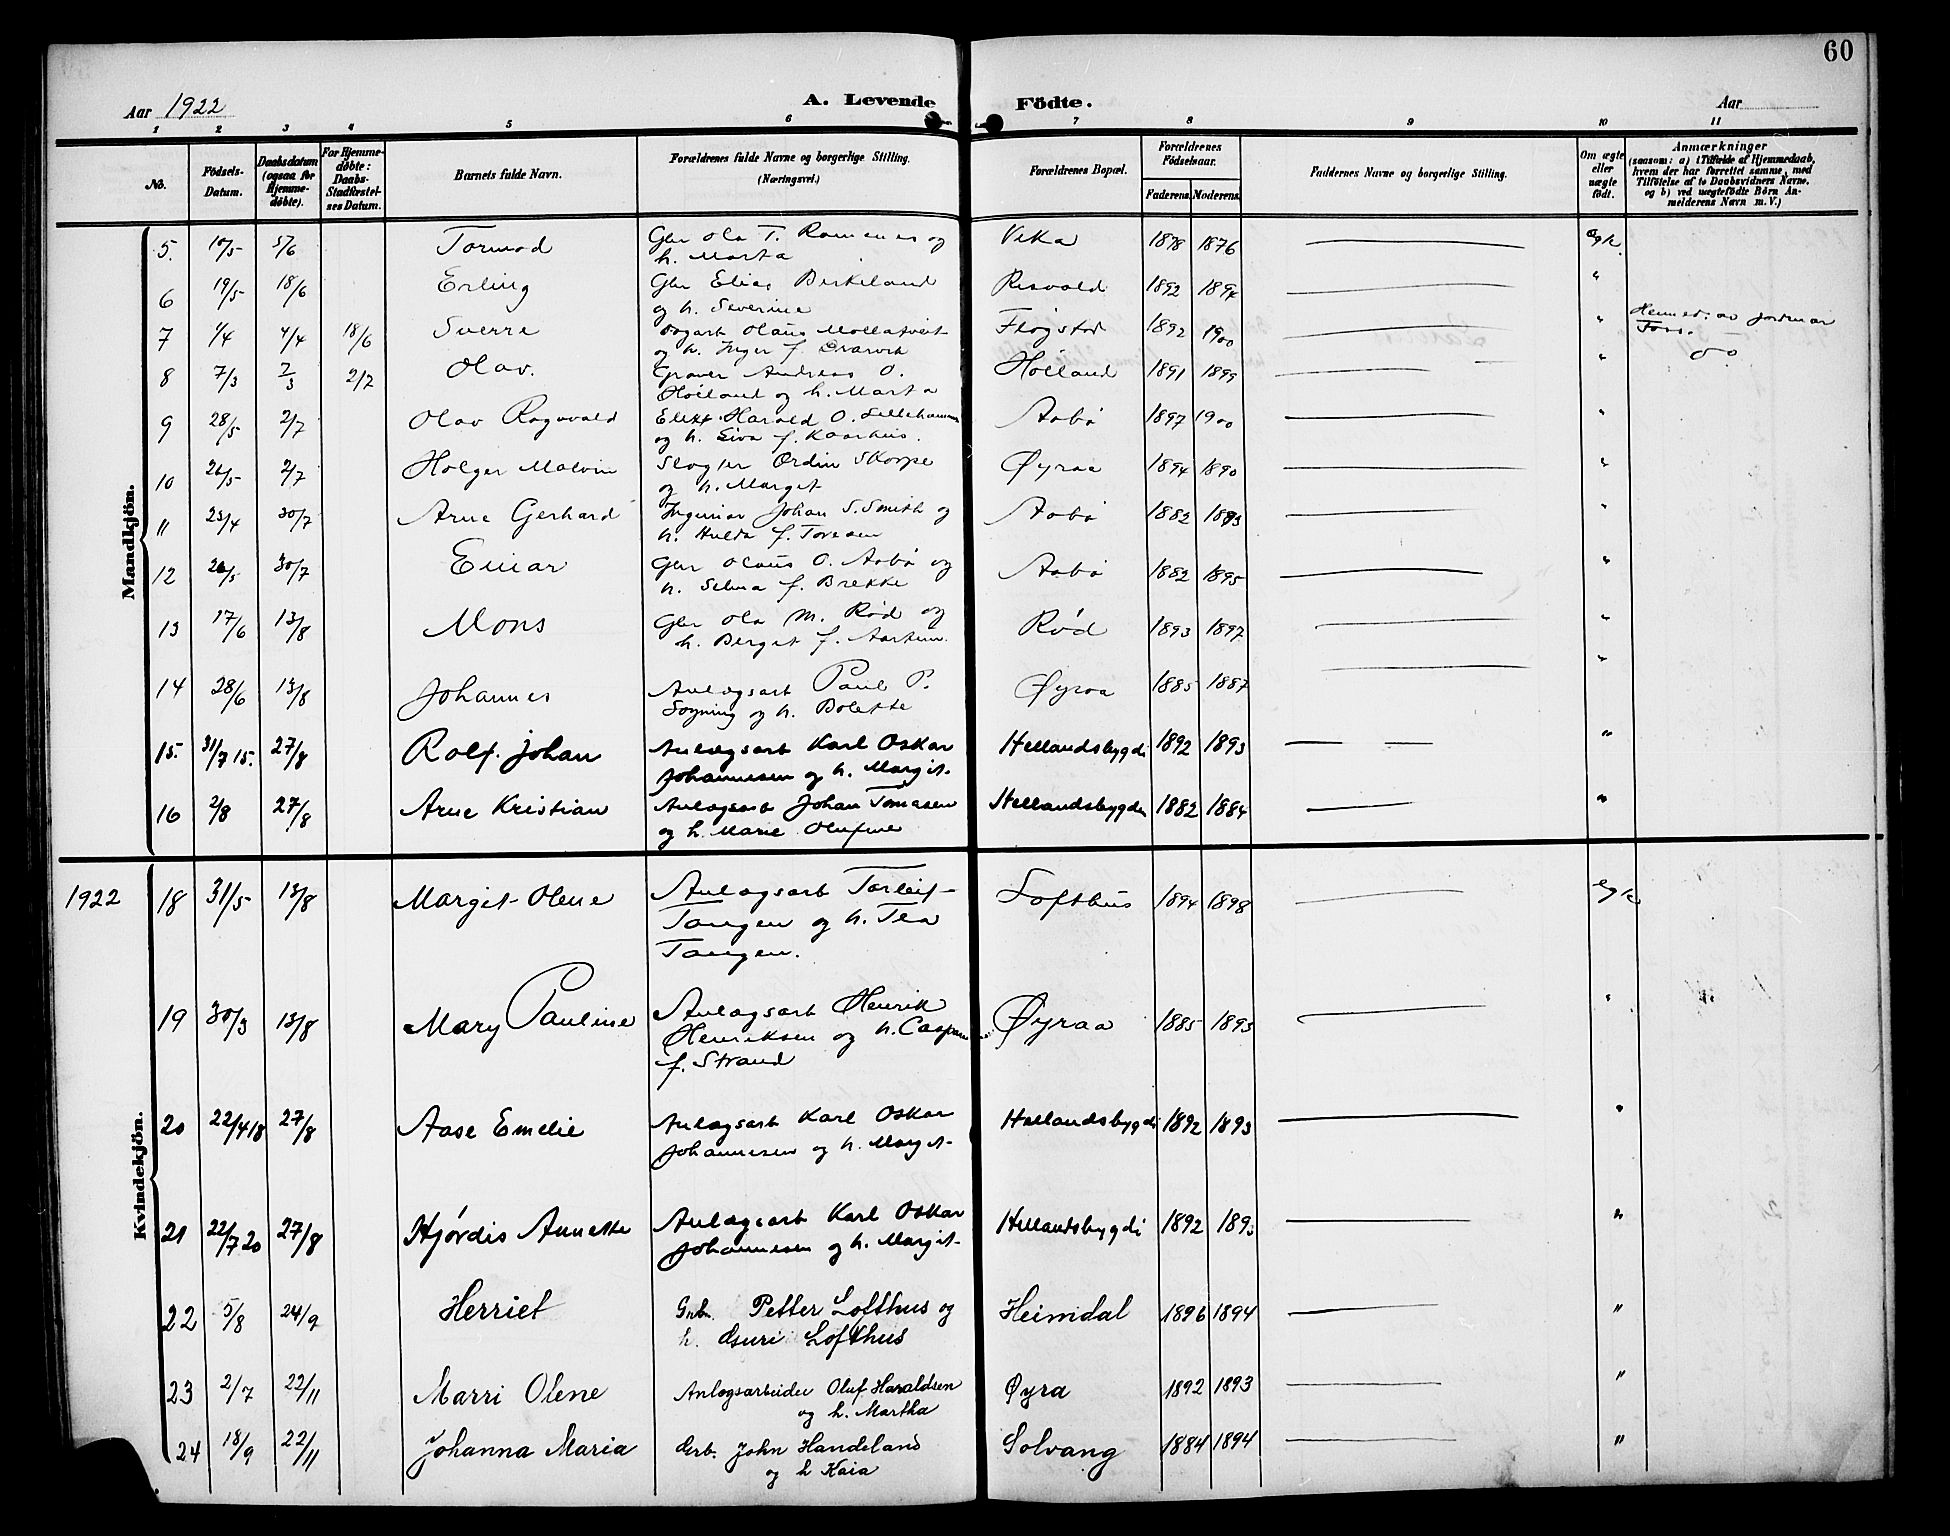 60
Aar 1922
A. Levende Födte.
Aar
1 2 3 4 5 6 7 8 9 10 11
No.
Födsels-Datum.
Daabsdatum (ogsaa for Hjemme-døbte).
For Hjemme-døbte: Daabs-Stadfæstel-ses Datum.
Barnets fulde Navn.
Forældrenes fulde Navne og borgerlige Stilling. (Næringsvei.)
Forældrenes Bopæl.
Forældrenes Födselsaar.
Faderens. Moderens.
Faddernes Navne og borgerlige Stilling.
Om ægte eller uægte født.
Anmærkninger
(saasom: a) i Tilfælde af Hjemmedaab, hvem der har forrettet samme, med Tilføielse af to Daabsvidners Navne, og b) ved uægtefødte Børn An-melderens Navn m. V.)
Mandkjön.
5. 10/5 5/6 Tormod Gbr Ola T. og Vika 1878 1876 egte
h. Marta
6 19/5 18/6 Erling Gbr Elias Birkeland Risvold 1892 1894 "
og h. Severine
7 1/4 4/4 18/6 Sverre Olaus Fløgstad 1892 1900 " Hjemmed. av jordmor
og h. Inger f.
8 7/3 7/3 2/7 Olav. Graver Andreas O. Høiland 1891 1899 "
Høiland og h. Marta
9 28/5 2/7 Olav Ragnvald Harald O. Lillehammer Aabø 1897 1900 "
og h. Siva f. Kaarhus.
10 26/5 2/7 Holger Malvin Ordin Skorpe Øyraa 1894 1890 "
og h. Marget
11 23/4 30/7 Arne Gerhard Ingeniør Johan S. Smith og Aabø 1882 1893 "
h. Hulda f.
12 26/5 30/7 Einar Gbr Olaus O. Aabø og Aabø 1882 1895 "
h. Selma f. Brekke
13 17/6 13/8 Mons Gbr Ola M. Rød og Rød 1893 1897 "
h. Berget f.
14 28/6 13/8 Johannes Anlægsarb Paul P. Øyraa 1885 1887 "
Sogning og h. Bolette
15. 31/7 15. 27/8 Rolf Johan Anlægsarb Karl Oskar Hellandsbygdi 1892 1893 "
Johannesen og h. Margit
16 2/8 27/8 Arne Kristian Anlægsarb Johan Tomasen Hellandsbygden 1882 1884 "
og h. Marie Olufine
Kvindekjön.
1922 18 31/5 13/8 Margit Olene Anlægsarb Torleif Lofthus 1894 1898 egte
Tangen og h. Tea
Tangen.
19 30/3 13/8 Mary Pauline Anlægsarb Henrik Øyraa 1885 1893 "
Henriksen og h.
f. Strand
20 22/4 18 27/8 Aase Emelie Anlægsarb Karl Oskar Hellandsbygdi 1892 1893 "
Johannesen og h. Margit
21 22/7 20 27/8 Hjørdis Annette Anlægsarb Karl Oskar Hellandsbygdi 1892 1893 "
Johannesen og h. Margit
22 5/8 24/9 Herriet Petter Lofthus og Heimdal 1896 1894 "
h. Guri Lofthus
23 2/7 22/11 Marri Olene Anlægsarbeider Oluf Haraldsen Øyra 1892 1893 "
og h. Martha
24 18/9 22/11 Johanna Maria John Handeland Solvang 1884 1894 "
og h Kaia